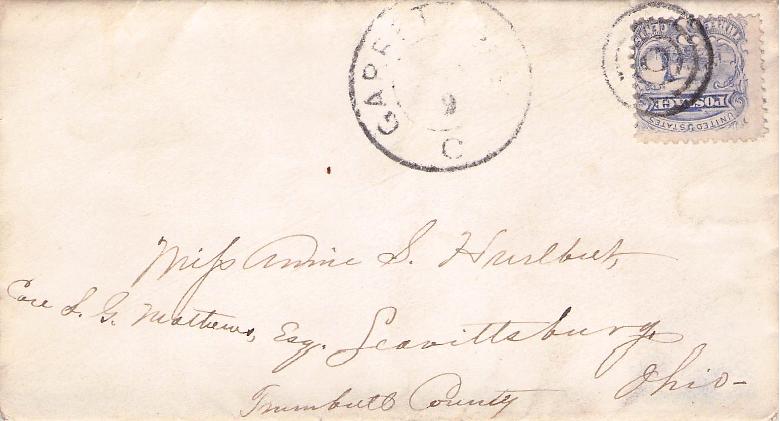 GARRETT
9
O
UNITED STATES
POSTAGE
Miss Annie S. Hurlbut,
Care S. G. Mathews, Esq. Leavittsburg
Ohio-
Trumbull County